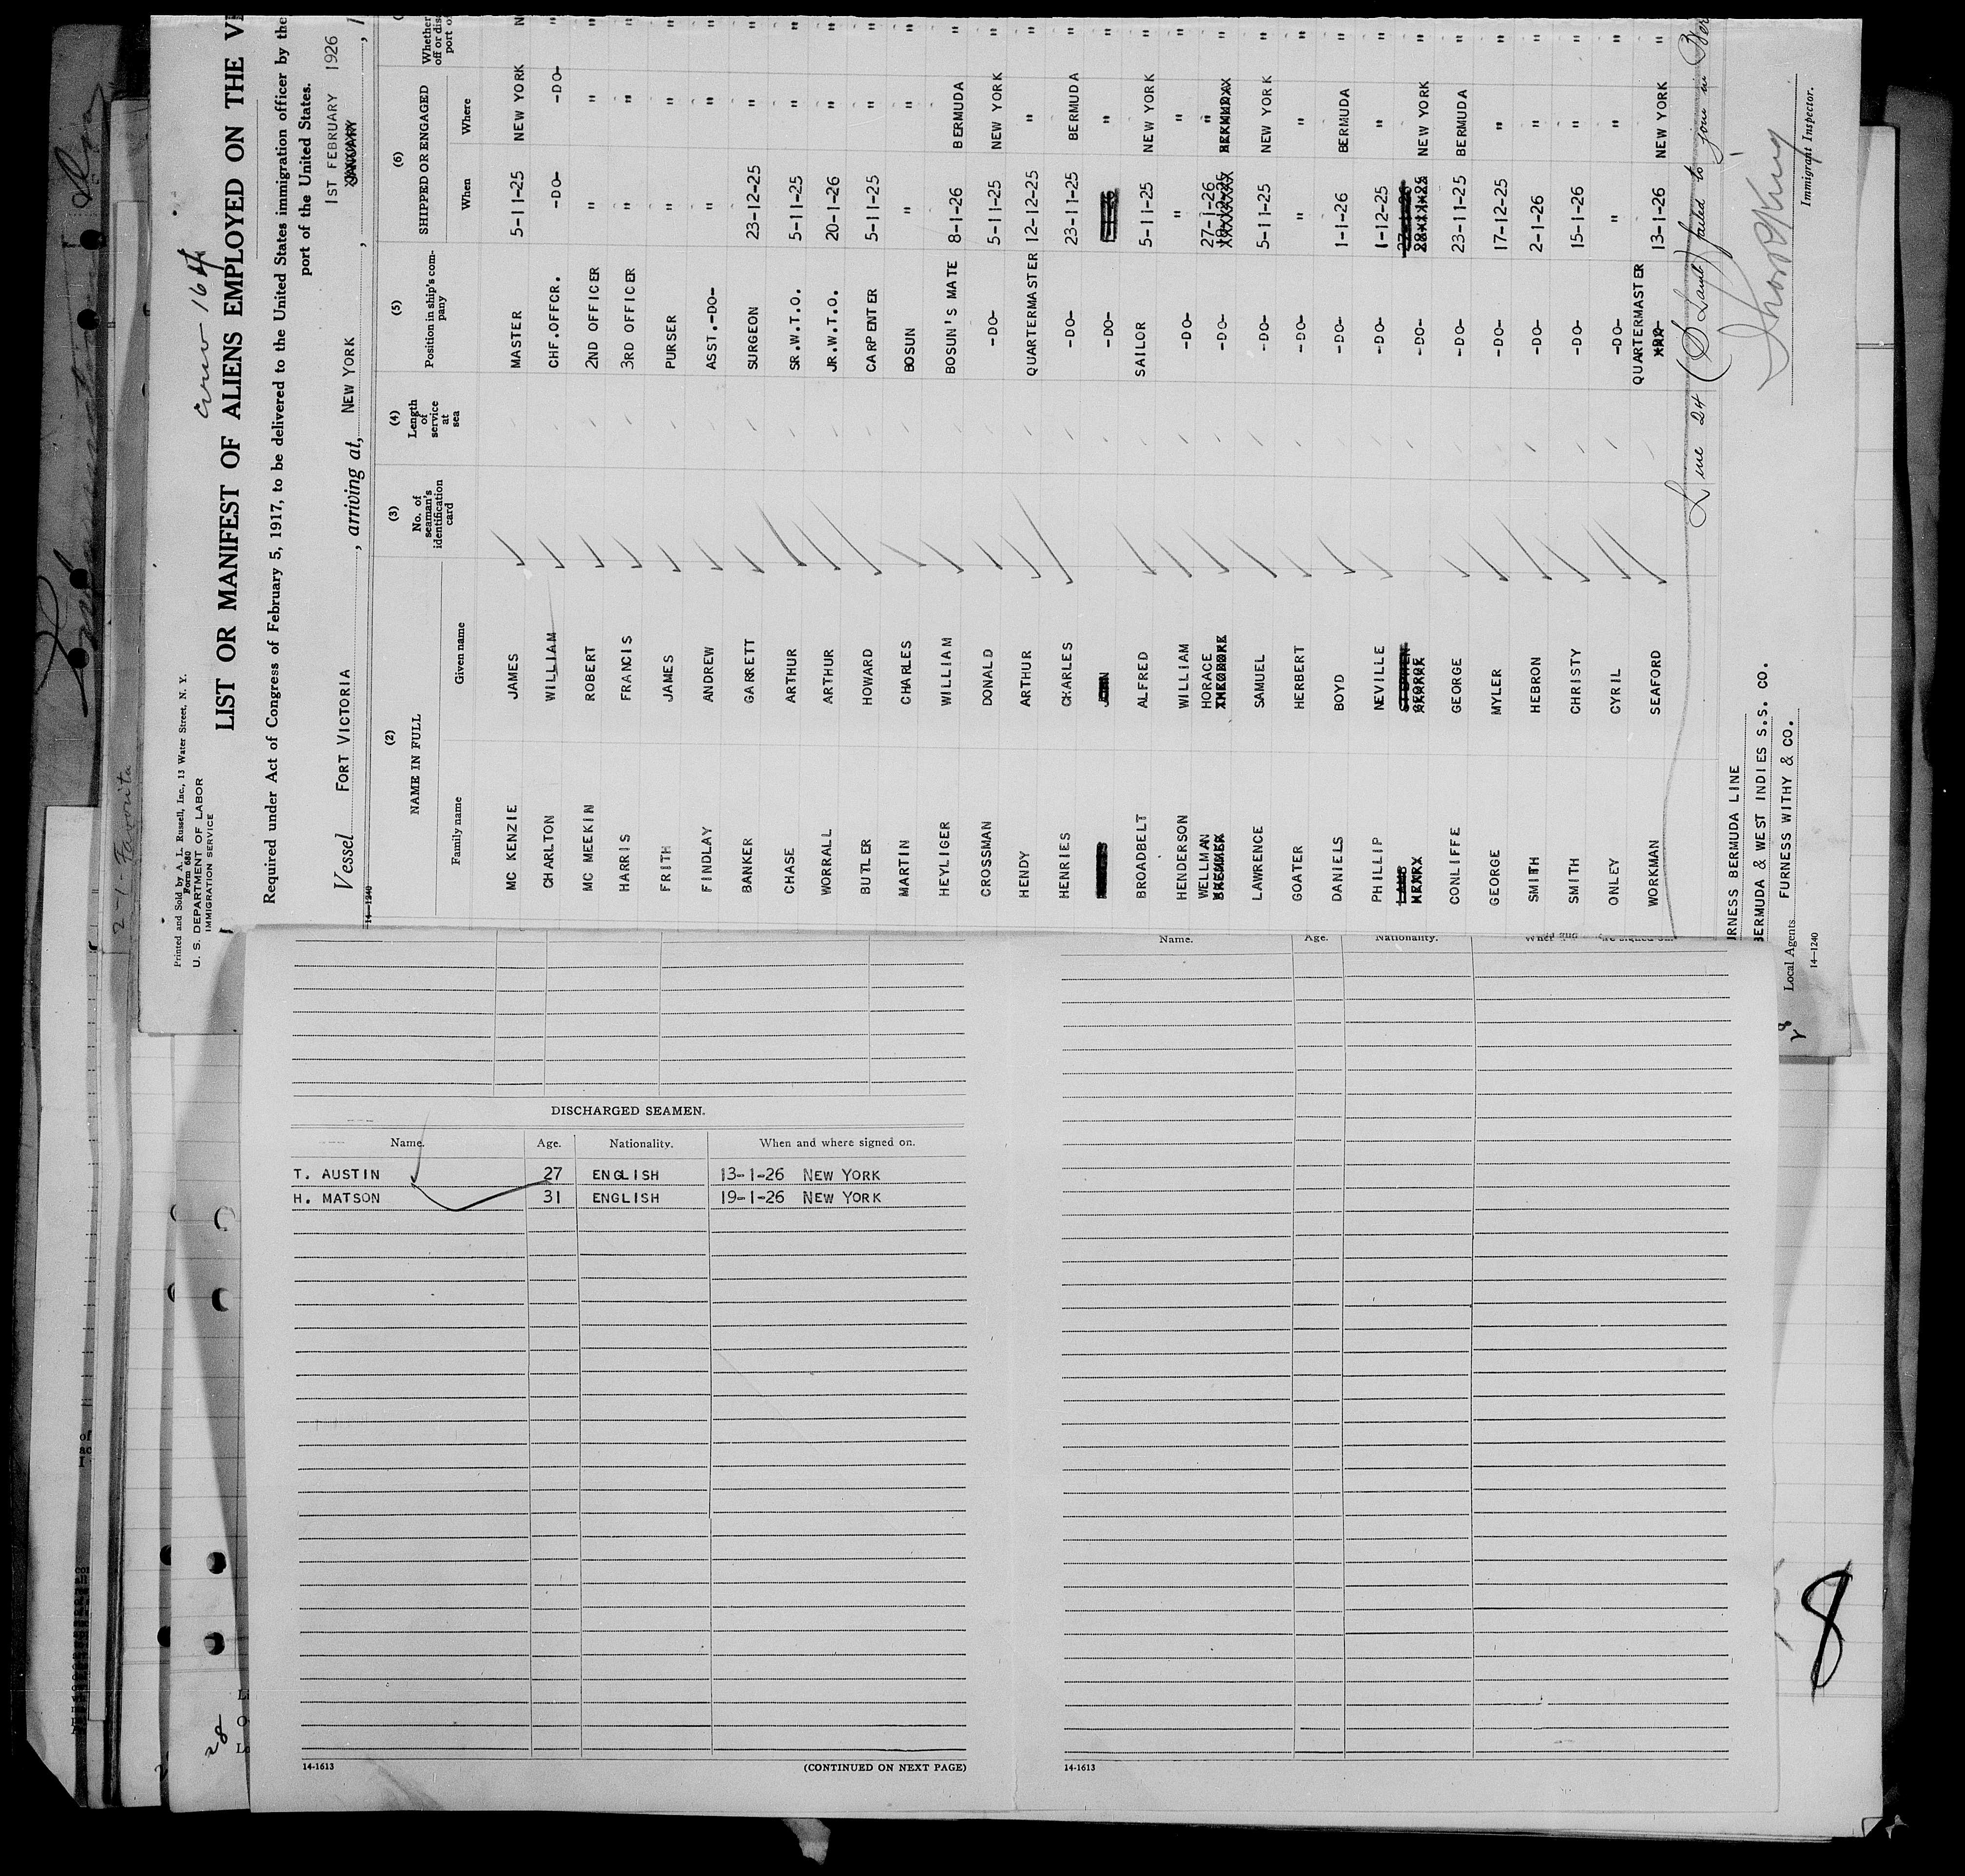 crew 164
Printed and Sold by A. L. Russell, Inc., 13 Water Street, N. Y.
Form 680
U. S. DEPARTMENT OF LABOR
IMMIGRATION SERVICE
LIST OR MANIFEST OF ALIENS EMPLOYED ON THE
Required under Act of Congress of February 5, 1917, to be delivered to the United States immigration officer by the
port of the United States.
Vessel FORT VICTORIA, arriving at, NEW YORK, 1ST FEBRUARY 1926
14-1240
(2) (3) (4) (5) (6)
NAME IN FULL No. of seaman's identification card Length of service at sea Position in ship's company SHIPPED OR ENGAGED Whether
Family name Given name When Where
MC KENZIE JAMES MASTER 5-11-25 NEW YORK
CHARLTON WILLIAM CHF.OFFCR. -DO- -DO- "
MC MEEKIN ROBERT 2ND OFFICER " " "
HARRIS FRANCIS 3RD OFFICER " " "
FRITH JAMES PURSER " " "
FINDLAY ANDREW ASST.-DO- " " "
BANKER GARRETT SURGEON 23-12-25 " "
CHASE ARTHUR SR.W.T.O. 5-11-25 " "
WORRALL ARTHUR JR.W.T.O. 20-1-26 " "
BUTLER HOWARD CARPENTER 5-11-25 " "
MARTIN CHARLES BOSUN " " "
HEYLIGER WILLIAM BOSUN'S MATE 8-1-26 BERMUDA "
CROSSMAN DONALD -DO- 5-11-25 NEW YORK "
HENDY ARTHUR QUARTERMASTER 12-12-25 " "
HENRIES CHARLES -DO- 23-11-25 BERMUDA "
-DO- " "
BROADBELT ALFRED SAILOR 5-11-25 NEW YORK "
HENDERSON WILLIAM -DO- " " "
WELLMAN HORACE -DO- 27-1-26 " "
LAWRENCE SAMUEL -DO- 5-11-25 NEW YORK "
GOATER HERBERT -DO- " " "
DANIELS BOYD -DO- 1-1-26 BERMUDA "
PHILLIP NEVILLE -DO- 1-12-25 " "
LAMB STEPHEN -DO- 27-1-26 NEW YORK "
CONLIFFE GEORGE -DO- 23-11-25 BERMUDA "
GEORGE MYLER -DO- 17-12-25 " "
SMITH HEBRON -DO- 2-1-26 " "
SMITH CHRISTY -DO- 15-1-26 " "
ONLEY CYRIL -DO- " " "
WORKMAN SEAFORD QUARTERMASTER 13-1-26 NEW YORK "
Line 24 (S Lamb) failed to join in Ber
RNESS BERMUDA LINE
BERMUDA & WEST INDIES S.S. CO.
Local Agents FURNESS WITHY & CO.
Immigrant Inspector.
14-1240
2-1-Favorita
DISCHARGED SEAMEN.
Name. Age. Nationality. When and where signed on.
T. AUSTIN 27 ENGLISH 13-1-26 NEW YORK
H. MATSON 31 ENGLISH 19-1-26 NEW YORK
14-1613
(CONTINUED ON NEXT PAGE)
Name. Age. Nationality.
14-1613
28
8